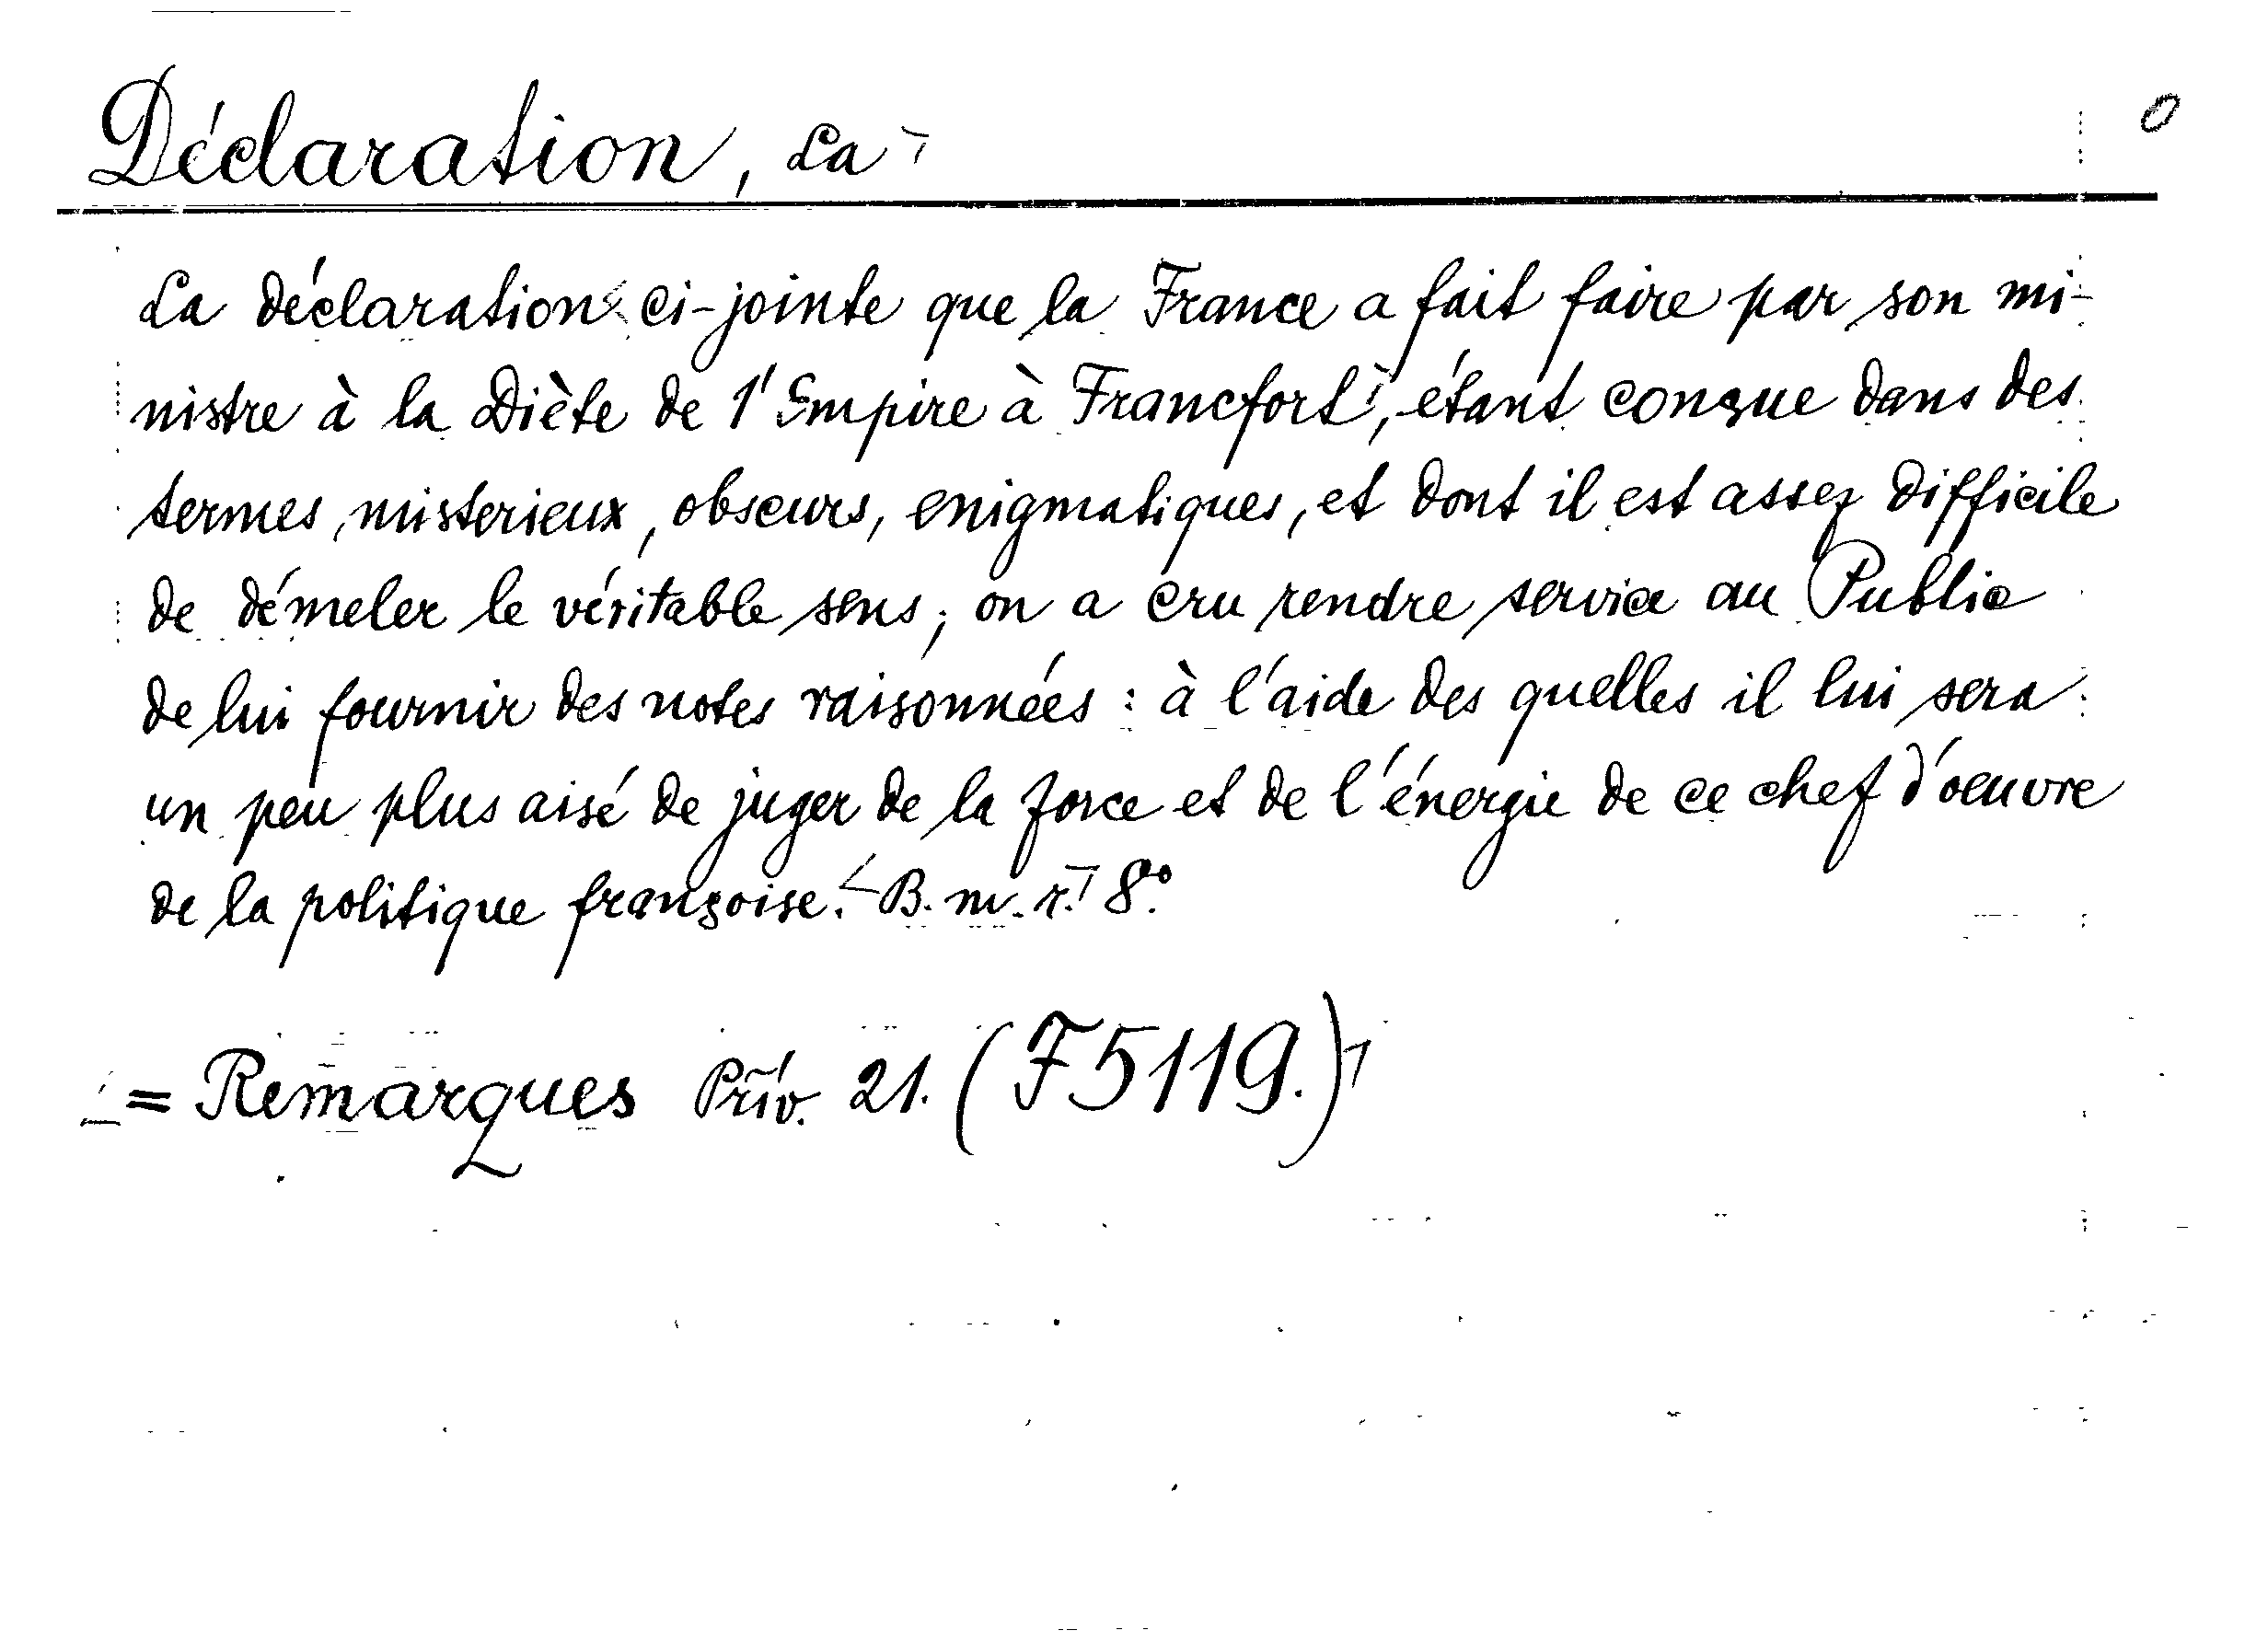 Déclaration, La
0
La déclaration ci-jointe que la France a fait faire par son mi-
nistre à la Diète de l'Empire à Francfort, étant conçue dans des
termes, misterieux, obscurs, enigmatiques, et dont il est assez difficile
de démeler le véritable sens; on a cru rendre service au Public
de lui fournir des notes raisonnées: à l'aide des quelles il lui sera
un peu plus aisé de juger de la force et de l'énergie de ce chef d'oeuvre
de la politique françoise. B. m. r. 8°.
= Remarques Priv. 21. (F5119.)